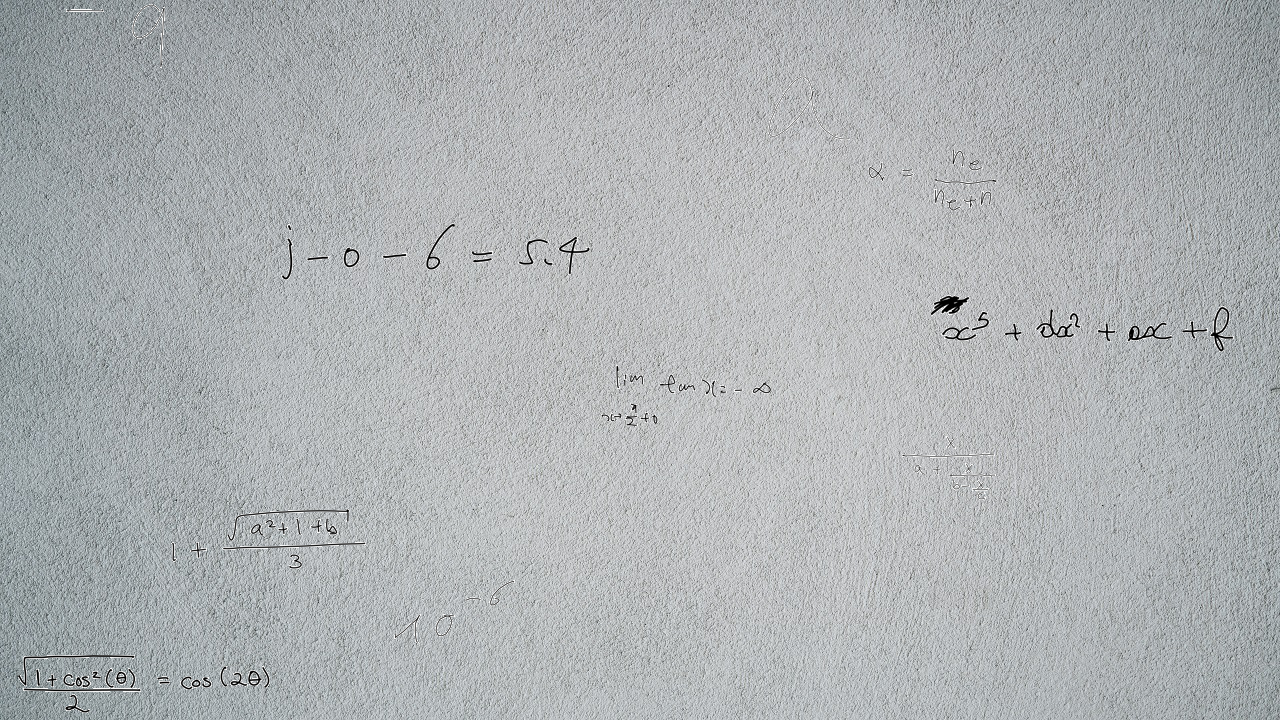 α = n_e / (n_e + n)
j - 0 - 6 = 5.4
x^5 + dx^2 + ax + f
lim tan x = - ∞
x→π/2+0
1 + √(a^2 + 1 + b) / 3
10^-6
√(1 + cos^2(θ)) / 2 = cos (2θ)